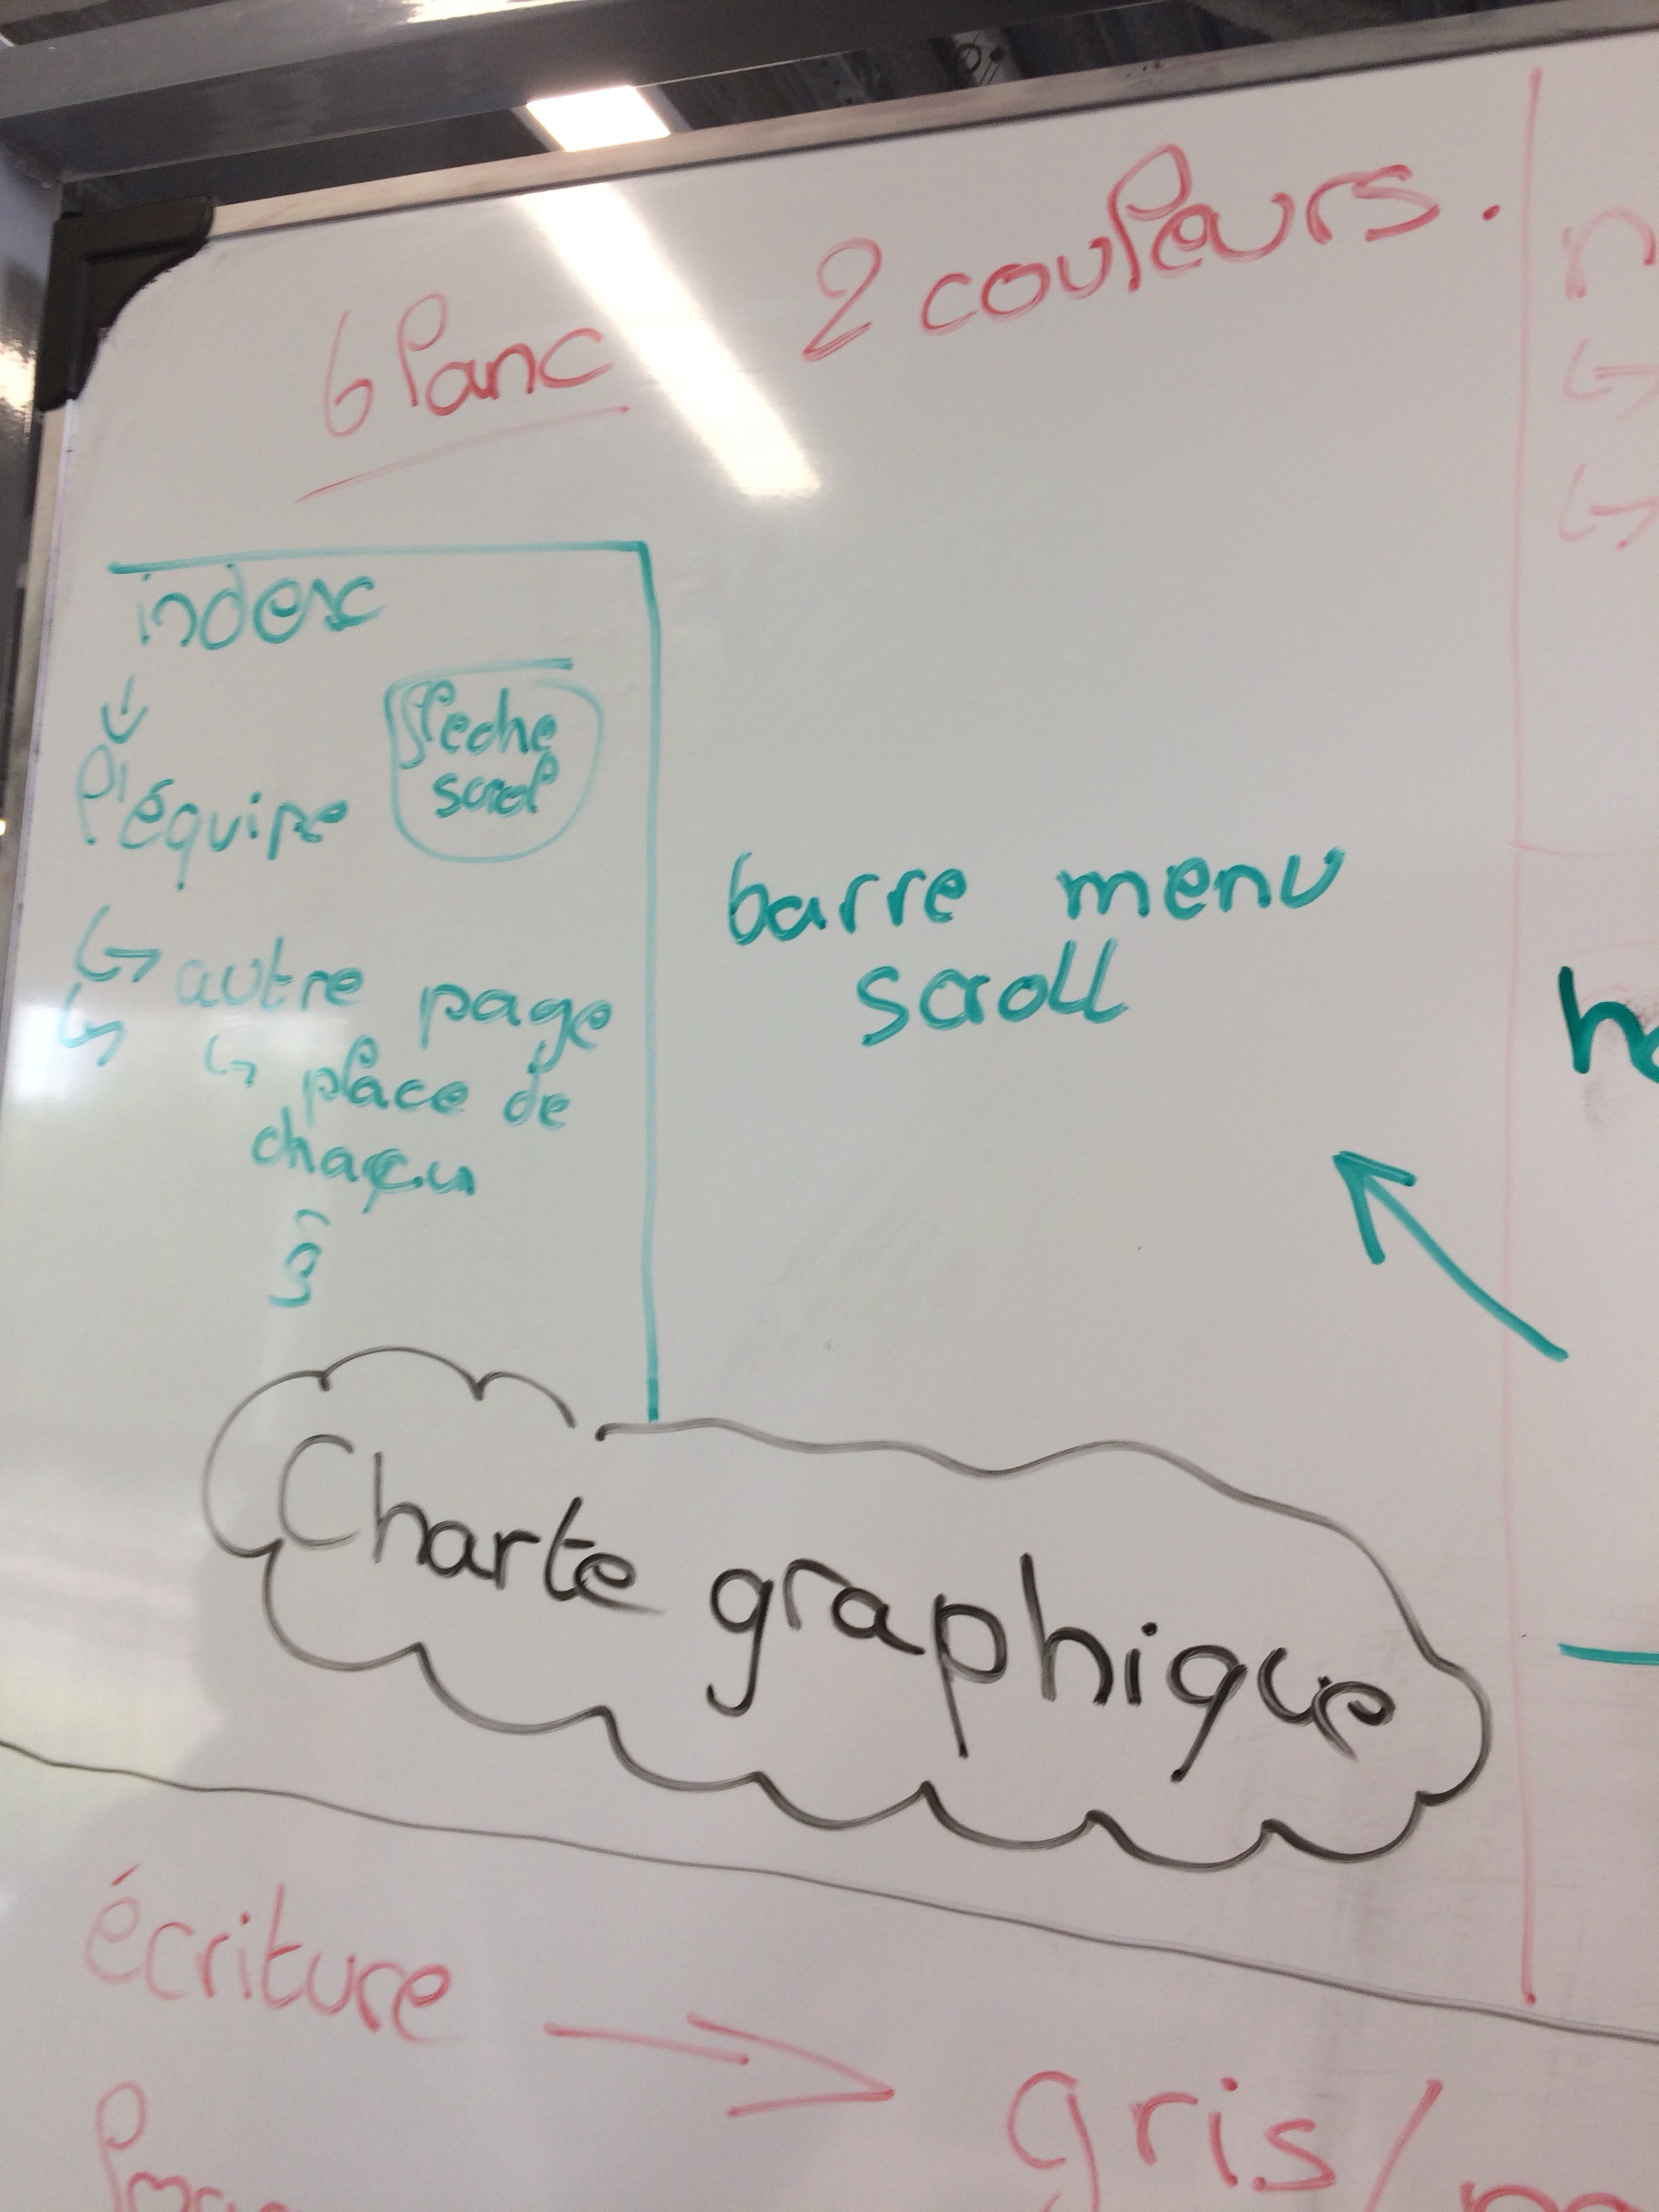 blanc
2 couleurs.
index
fleche
scrol
l'équipe
autre page
place de
chaçun
barre menu
scroll
Charte graphique
écriture
gris/